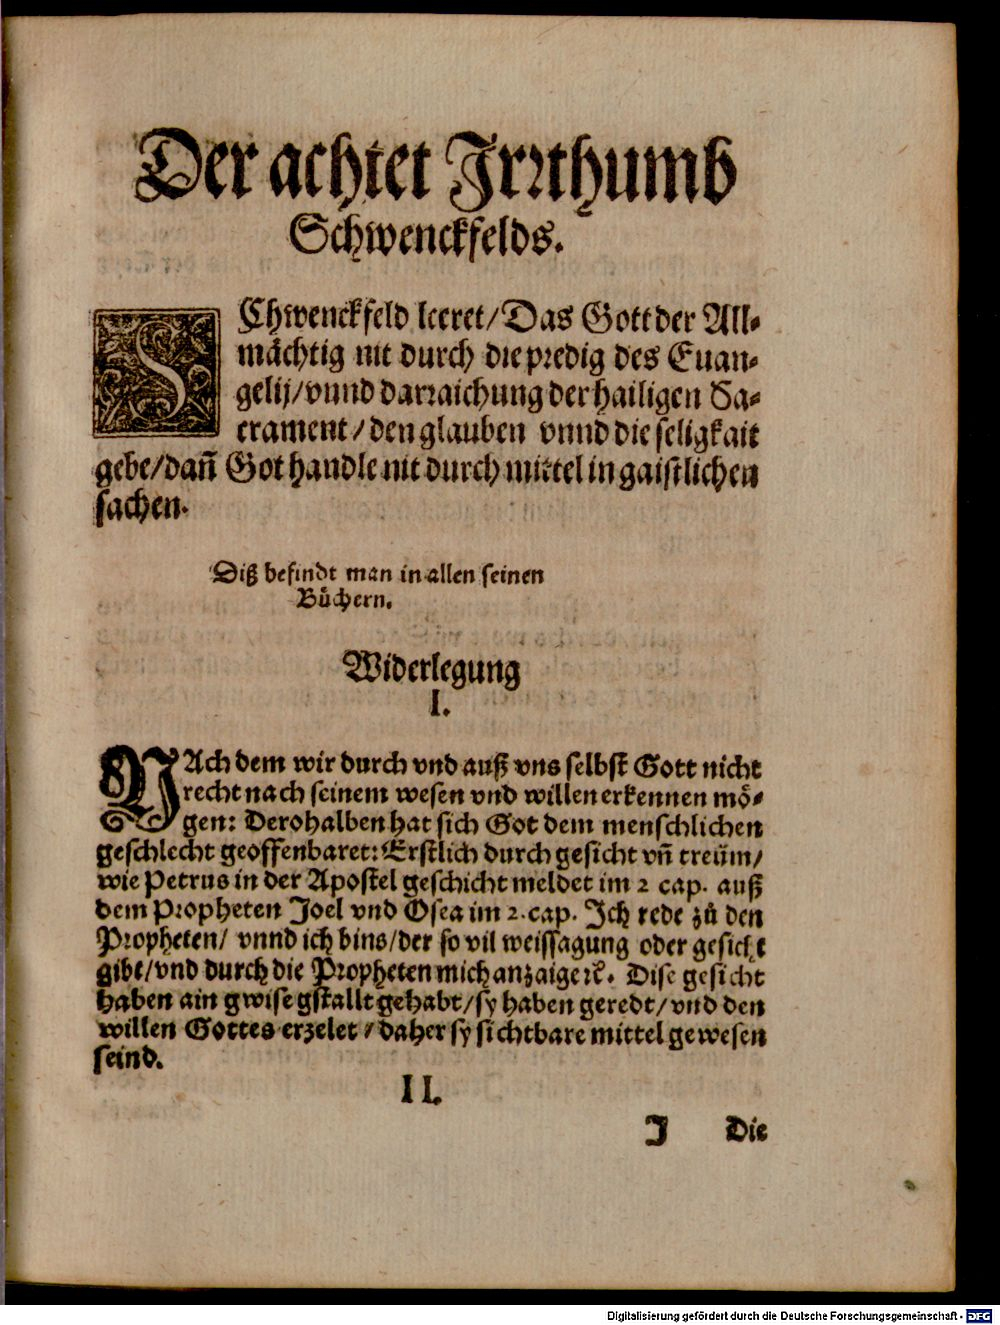 Der achtet Irrthumb
Schwenckfelds.
SChwenckfeld leeret/Das Gott der All⸗
mächtig nit durch die predig des Euan⸗
gelij/vnnd darraichung der hailigen Sa⸗
crament/den glauben vnnd die seligkait
gebe/dañ Got handle nit durch mittel in gaistlichen
sachen.
Diß befindt man in allen seinen
Bůchern.
Widerlegung
I.
NAch dem wir durch vnd auß vns selbst Gott nicht
recht nach seinem wesen vnd willen erkennen mö⸗
gen: Derohalben hat sich Got dem menschlichen
geschlecht geoffenbaret: Erstlich durch gesicht vñ treüm/
wie Petrus in der Apostel geschicht meldet im 2 cap. auß
dem Propheten Joel vnd Osea im 2. cap. Ich rede zů den
Propheten/ vnnd ich bins/der so vil weissagung oder gesicht
gibt/vnd durch die Propheten mich anzaige ꝛc. Dise gesicht
haben ain gwise gstallt gehabt/sy haben geredt/vnd den
willen Gottes erzelet/daher sy sichtbare mittel gewesen
seind.
II.
J Die
Digitalisierung gefördert durch die Deutsche Forschungsgemeinschaft - DFG